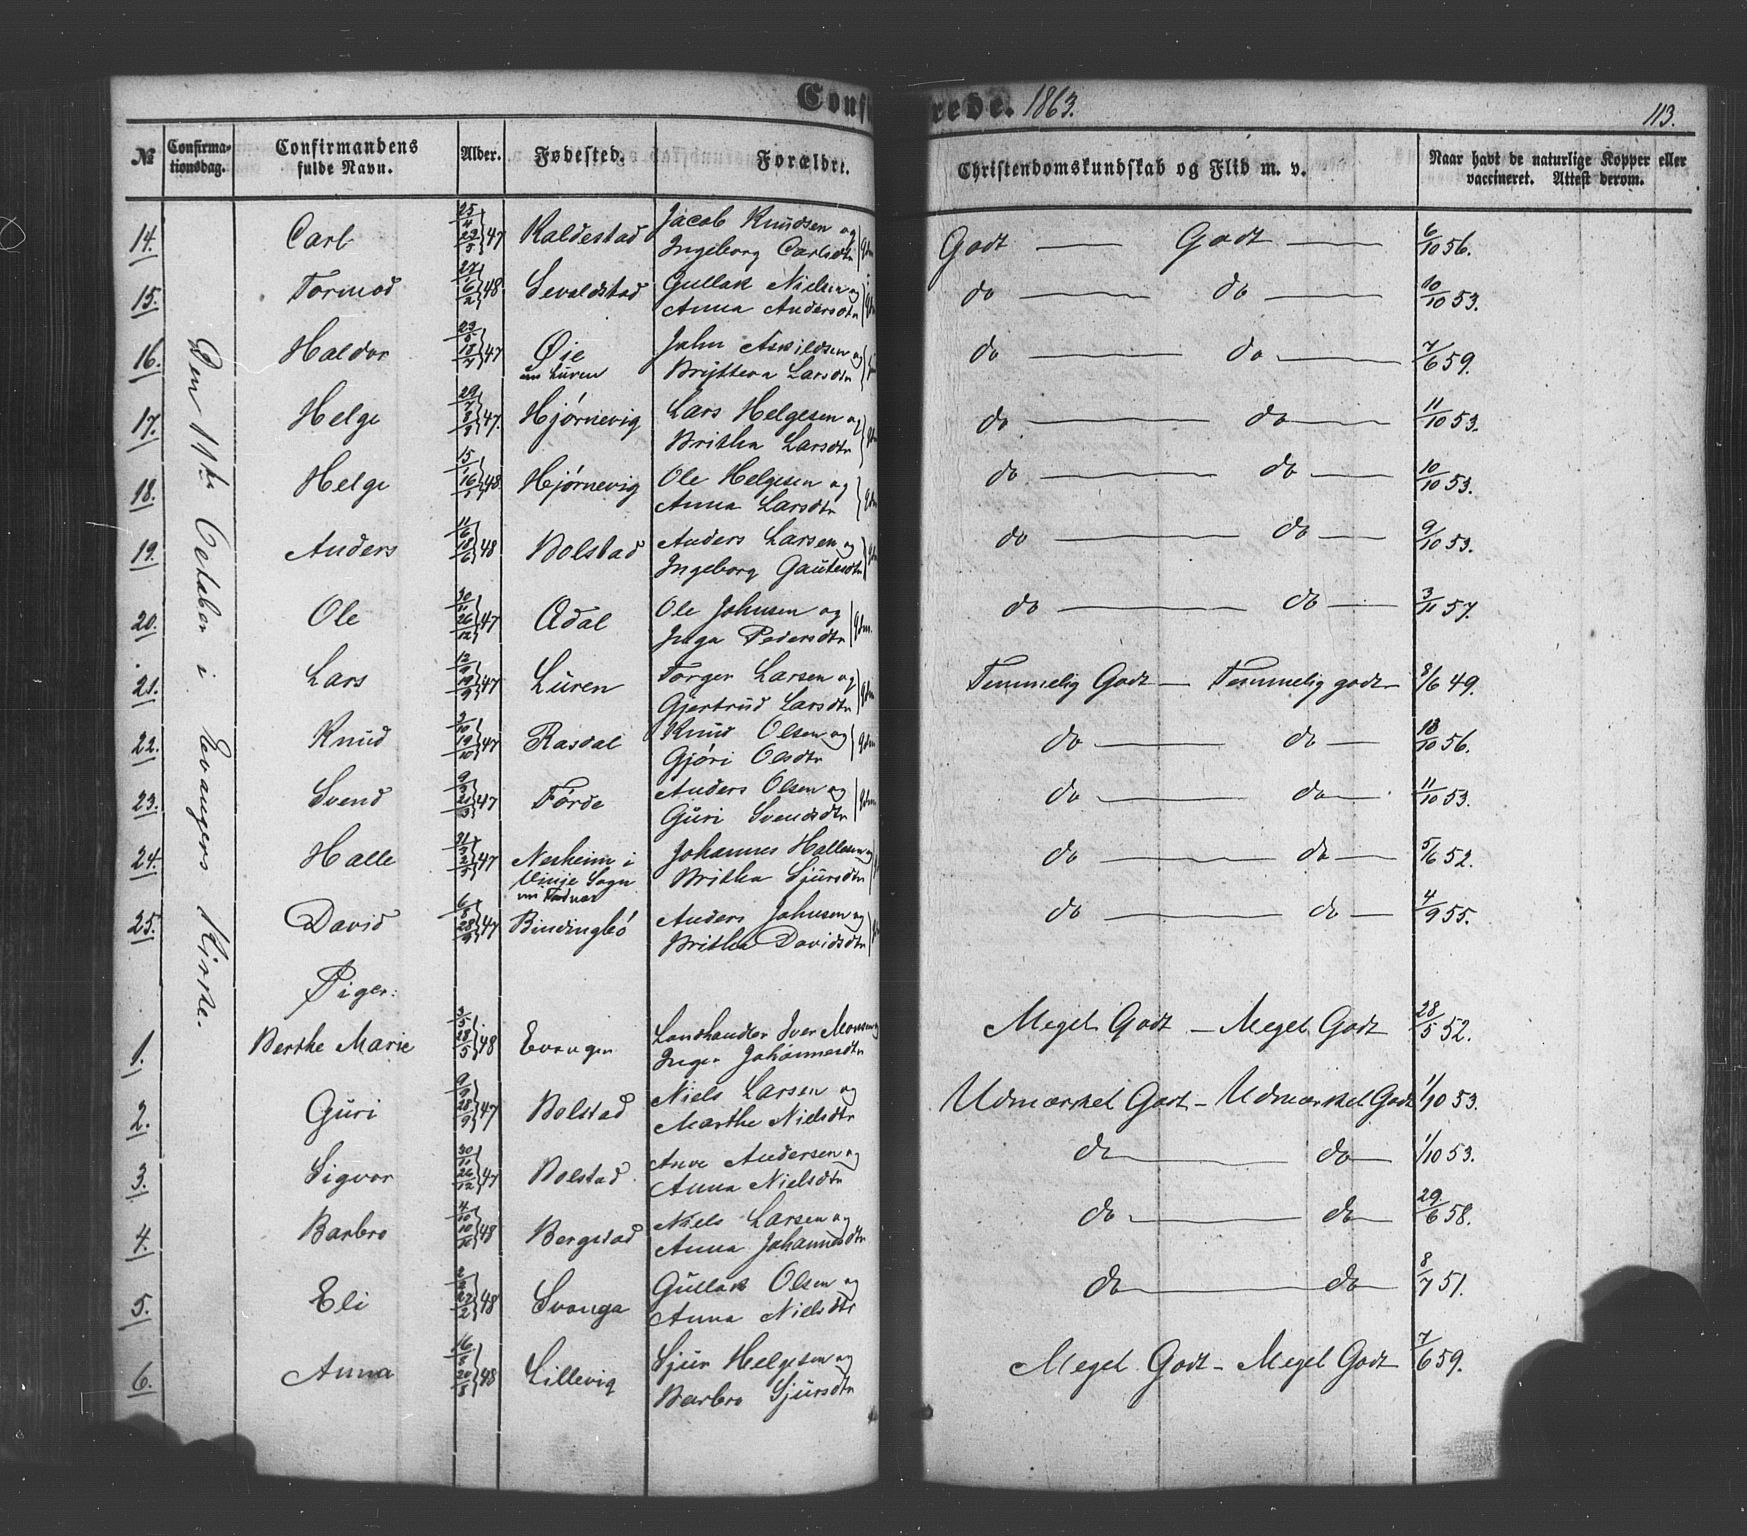 Conf rede. 1863. 113.
№ Confirmationsdag. Confirmandens fulde Navn. Alder. Fødested. Forældre. Christendomskundskab og Flid m. v. Naar havt de naturlige Kopper eller vaccineret. Attest derom.
Den 11te October i Evangers Kirke.
14. Carl 25/4 47 Kaldestad Jacob Knudsen og Godt — Godt — 6/10 56.
Ingeborg Carlsdtr
15. Tormod 48. Sevaldstad Gullak Nielsen og do — do — 10/10 53.
Anna Andersdtr
16. Haldor 47 Øie Jahn Askildsen og do — do — 7/6 59.
Luren Brytteva Larsdtr
17. Helge 29/7 8/9 47. Hjørnevig Lars Helgesen og do — do — 11/10 53.
Britha Larsdtr
18. Helge 15/1 16/1 48. Hjørnevig Ole Helgesen og do — do — 10/10 53.
Anna Larsdtr
19. Anders 11/6 18/6 48 Bolstad Anders Larsen og do — do — 9/10 53.
Ingeborg Gautesdtr
20. Ole 30/11 26/12 47 Ådal Ole Johnsen og do — do — 3/11 57.
Inga Pedersdtr
21. Lars 12/9 19/9 47 Luren Torger Larsen og Temmelig Godt — Temmelig godt 8/6 49.
Gjertrud Larsdtr
22. Knud 3/10 19/10 47 Rasdal Knud Olsen og do — do — 18/10 56.
Gjøri Olsdtr
23. Svend 9/3 20/3 47 Førde Anders Olsen og do — do — 11/10 53.
Guri Svendsdtr
24. Halle 31/3 47 Nesheim i Johannes Hallesen og do — do — 5/6 52.
Vinje Sogn Britha Sjursdtr
25. David 28/9 47 Bindingbø Anders Johnsen og do — do — 4/9 55.
Britha Davidsdtr
Piger:
1. Berthe Marie 3/5 28/5 48 Evanger Landhandler Iver Monsen og Meget Godt — Meget Godt 28/5 52.
Inger Johannesdtr
2. Guri 9/9 28/9 47 Bolstad Niels Larsen og Udmærket Godt — Udmærket Godt 1/10 53.
Marthe Nielsdtr
3. Sigvor 30/11 26/12 47 Bolstad Arve Andersen og do — do — 1/10 53.
Anna Nielsdtr
4. Barbro 48 Bergstad Niels Larsen og do — do — 29/6 58.
Anna Johannesdtr
5. Eli 2/2 22/2 48 Svanga Gullak Olsen og do — do — 8/7 51.
Anna Nielsdtr
6. Anna 16/8 20/8 48 Lillevig Sjur Helgesen og Meget Godt — Meget Godt 7/6 59.
Barbro Sjursdtr